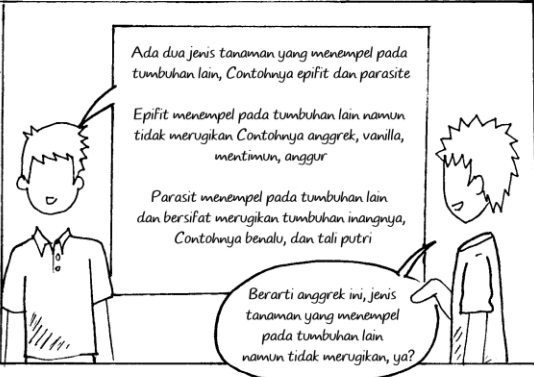 Ada dua jenis tanaman yang menempel pada
tumbuhan lain, Contohnya epifit dan parasite
Epifit menempel pada tumbuhan lain namun
tidak merugikan Contohnya anggrek, vanilla,
mentimun, anggur
Parasit menempel pada tumbuhan lain
dan bersifat merugikan tumbuhan inangnya,
Contohnya benalu, dan tali putri
Berarti anggrek ini, jenis
tanaman yang menempel
pada tumbuhan lain
namun tidak merugikan, ya?